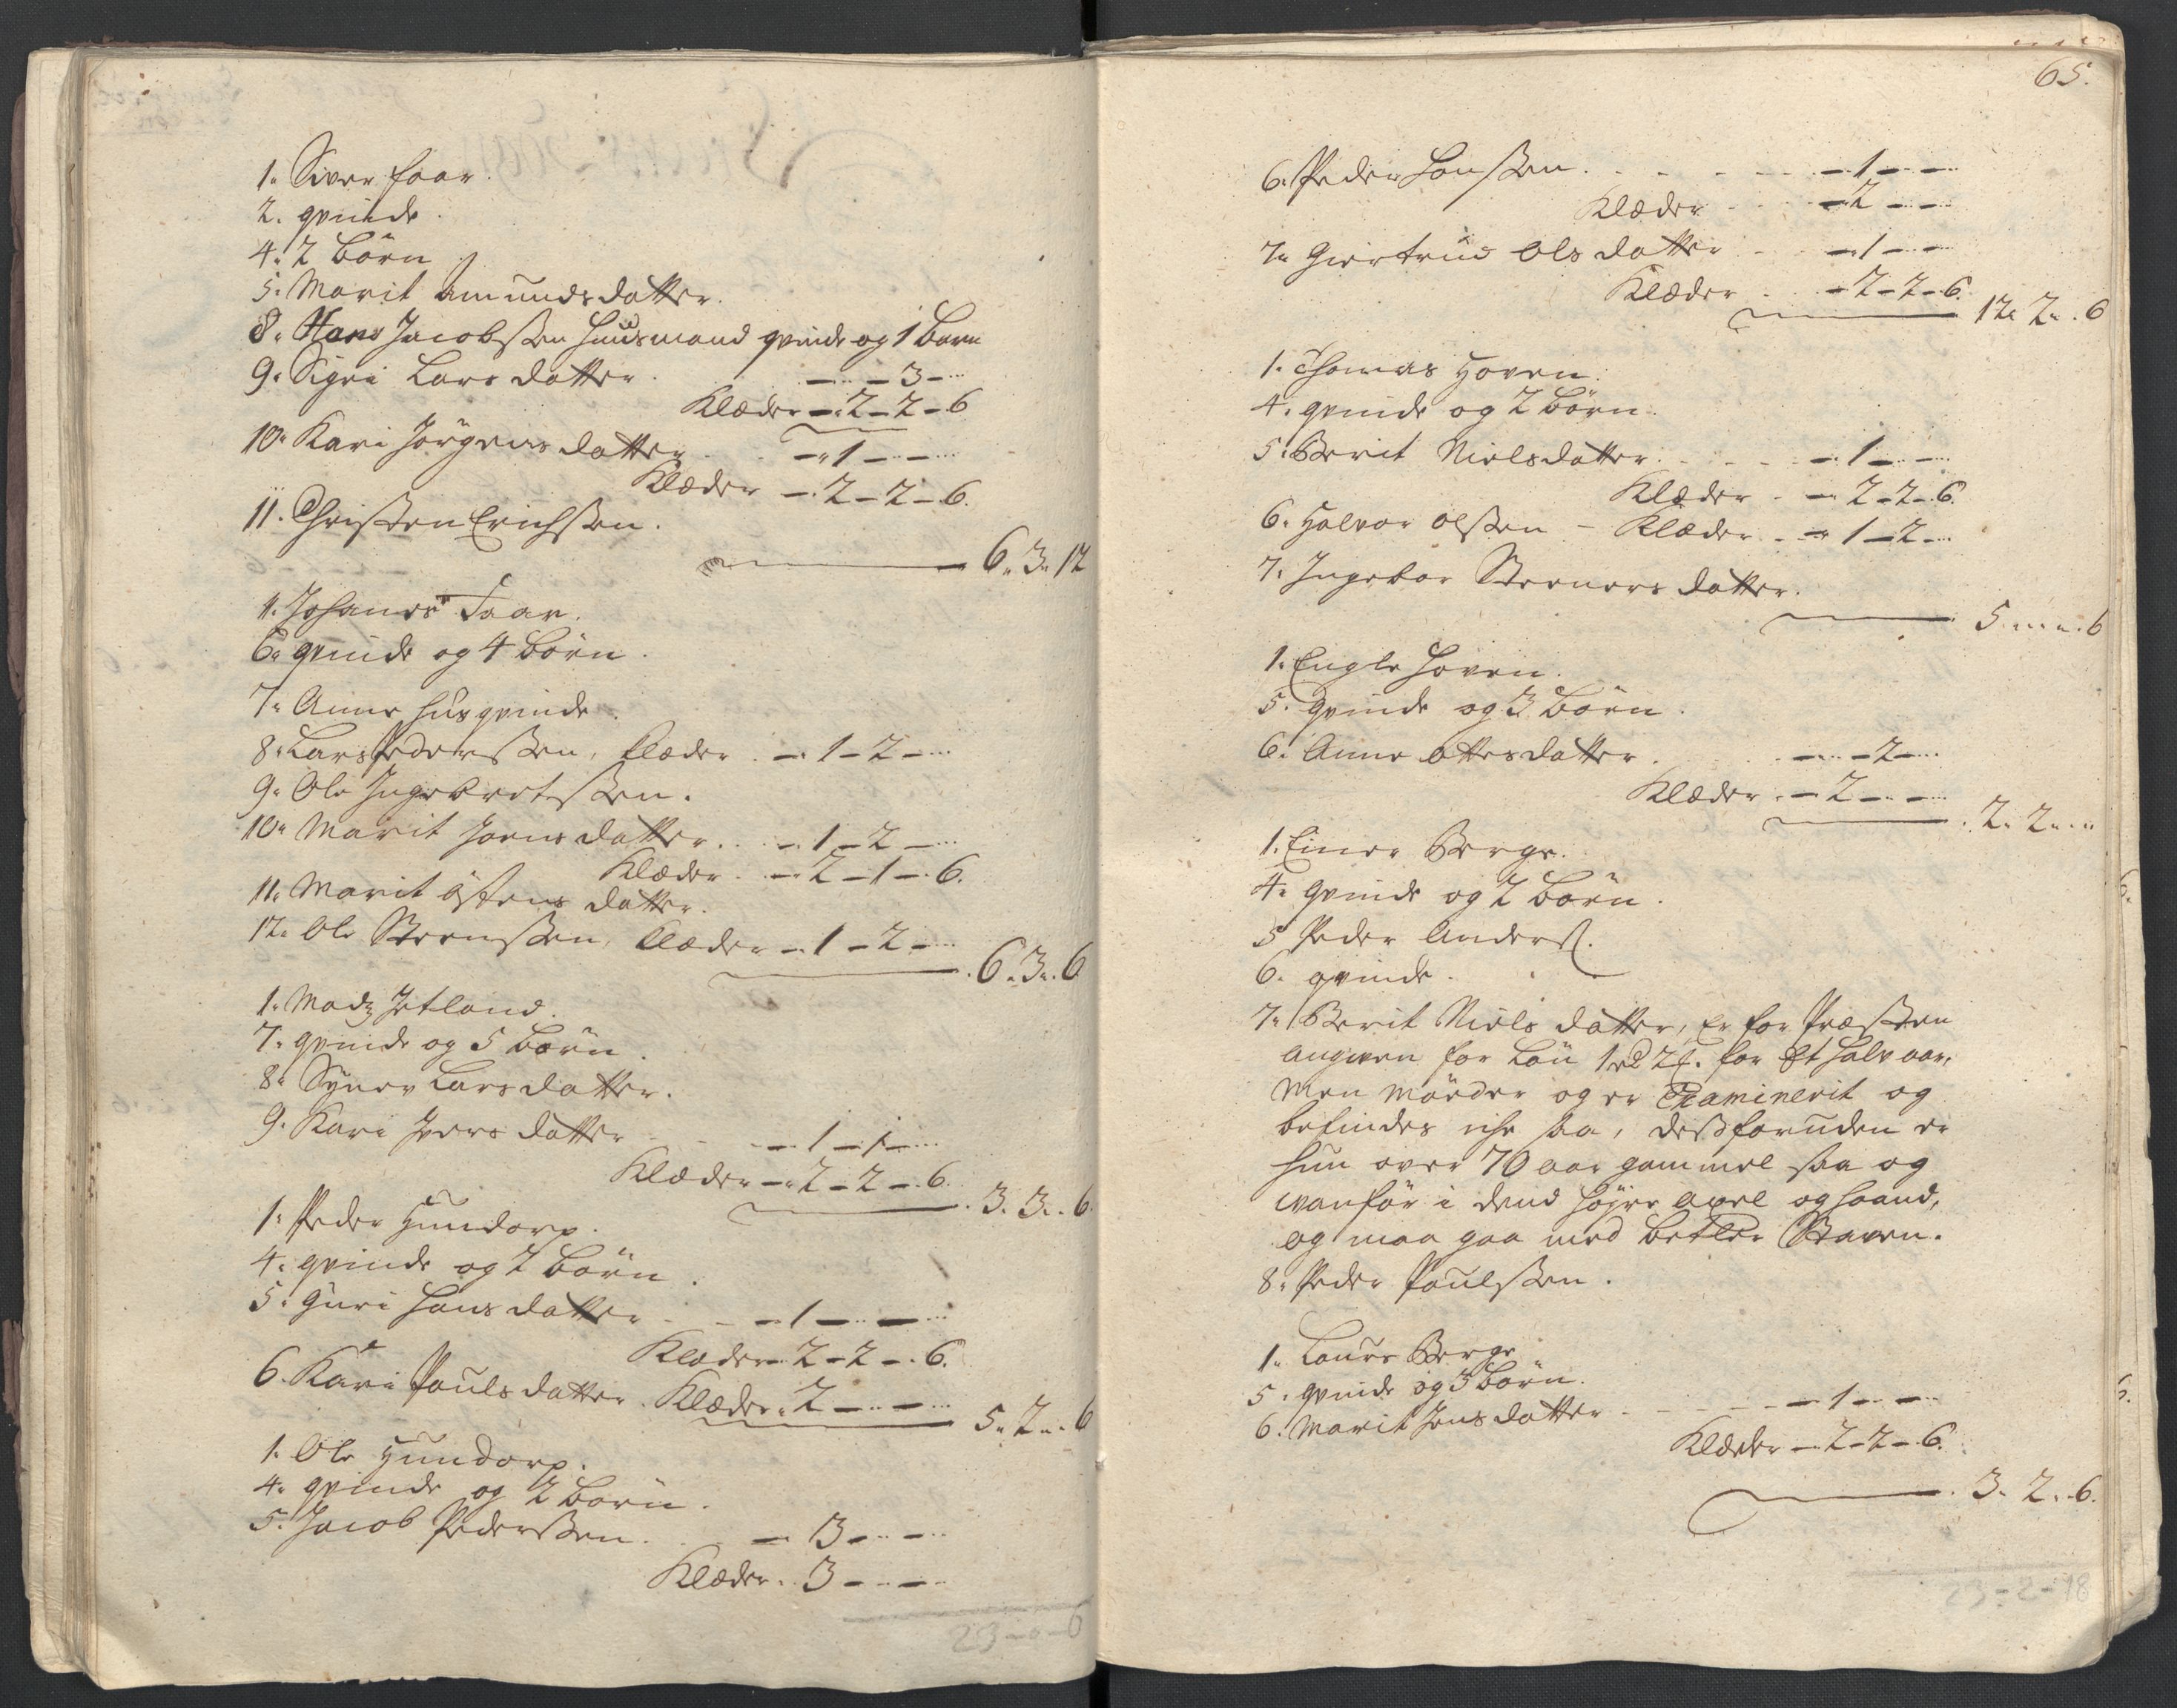 1. Siver Foar.
2. qvinde.
4. 2 börn
5. Marit Amunds datter.
8. Hans Jacobssen huusmand qvinde og 1 barn
9. Sigri Lars datter. — — 3 —
Klæder — 2 — 2 — 6
10. Kari Jörgens datter — 1 — —
Klæder — 2 — 2 — 6.
11. Christen Erichssen.
6. 3. 12
1. Johanes Foar.
6. qvinde og 4 börn.
7. Anne huusqvinde.
8. Lars Pederssen, Klæder — 1 — 2 —
9. Ole Ingebretssen.
10. Marit Joens datter. — 1 — 2 —
Klæder — 2 — 1 — 6.
11. Marit Östens datter.
12. Ole Steenssen, Klæder — 1 — 2 —
6. 3. 6
1. Madz Jetland.
7. qvinde og 5 börn.
8. Synev Lars datter.
9. Kari Ivers datter — 1 — 1 —
Klæder — 2 — 2 — 6.
3. 3. 6.
1. Peder Hundorp.
4. qvinde og 2 börn.
5. Guri Hans datter — 1 — —
Klæder 2 — 2 — 6.
6. Kari Pouls datter. Klæder. 2 — —
5. 2. 6
1. Ole Hundorp.
4. qvinde og 2 börn.
5. Jacob Pederssen. — 3 — —
Klæder. 3 — —
65.
6. Peder Hanssen. — 1 — —
Klæder — 2 — —
7. Giertrud Ols datter — 1 — —
Klæder — 2 — 2 — 6.
12. 2. 6
1. Thomas Hoven.
4. qvinde og 2 börn.
5. Berit Niels datter. — 1 — —
Klæder — 2 — 2 — 6.
6. Halvor Olssen — Klæder — 1 — 2 —
7. Ingebor Steeners datter.
5. — 6
1. Engle Hoven.
5. qvinde og 3 börn.
6. Anne Ottes datter. — — 2 —
Klæder — 2 — —
2. 2.
1. Einer Berge.
4. qvinde og 2 börn.
5 Peder Anderss.
6. qvinde.
7. Berit Niels datter, Er for Præsten
angiven for Lön 1 rd 2 for Et halv aar,
Men Möeder og er Examinerit og
befindes iche saa, desforuden er
hun over 70 aar gammel saa og
wanför i dend höyre axel og haand,
og maa gaa med betler Staven.
8. Peder Poulssen.
1. Laurs Berge
5. qvinde og 3 börn.
6. Marit Jens datter — 1 — —
Klæder — 2 — 2 — 6.
3. 2. 6.
23 - 2 - 18